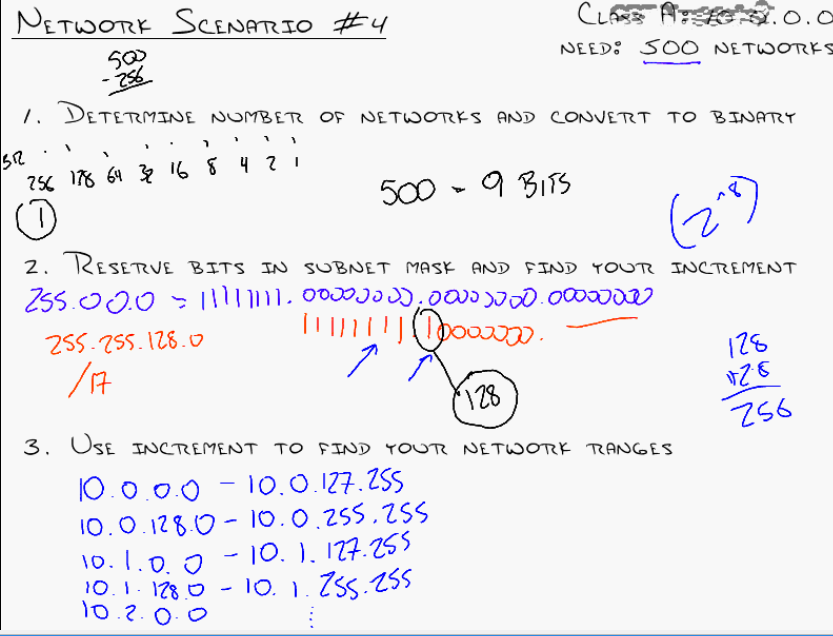 NETWORK SCENARIO #4
CLASS A: 10.0.0.0
NEED: 500 NETWORKS
500
- 256
1. DETERMINE NUMBER OF NETWORKS AND CONVERT TO BINARY
512 256 128 64 32 16 8 4 2 1
1
500 - 9 BITS
(2^8)
2. RESERVE BITS IN SUBNET MASK AND FIND YOUR INCREMENT
255.0.0.0 = 11111111.00000000.00000000.00000000
255.255.128.0
11111111.10000000.
/17
128
128
+128
256
3. USE INCREMENT TO FIND YOUR NETWORK RANGES
10.0.0.0 - 10.0.127.255
10.0.128.0 - 10.0.255.255
10.1.0.0 - 10.1.127.255
10.1.128.0 - 10.1.255.255
10.2.0.0